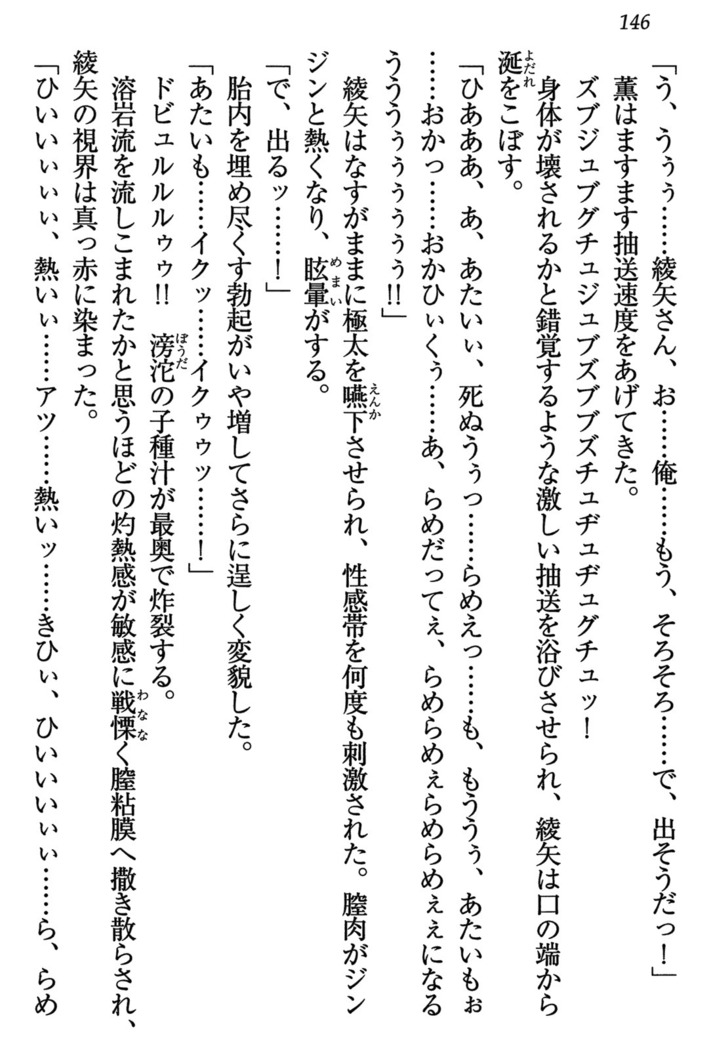 146
「う、うぅぅ……綾矢さん、お……俺……もう、そろそろ……で、出そうだっ！」
薫はますます抽送速度をあげてきた。
ズブジュブグチュジュブズブブズチュヂュヂュグチュッ！
身体が壊されるかと錯覚するような激しい抽送を浴びさせられ、綾矢は口の端から
涎をこぼす。
「ひあああ、あ、あたいぃ、死ぬうぅっ……らめえっ……も、もううぅ、あたいもぉ
……おかっ……おかひぃくぅ……あ、らめだってぇ、らめらめぇらめらめぇぇになる
うううぅぅぅぅぅぅ!!」
綾矢はなすがままに極太を嚥下させられ、性感帯を何度も刺激された。膣肉がジン
ジンと熱くなり、眩暈がする。
「で、出るッ……！」
胎内を埋め尽くす勃起がいや増してさらに逞しく変貌した。
「あたいも……イクッ……イクゥゥッ……！」
ドビュルルルゥゥ!!　滂沱の子種汁が最奥で炸裂する。
溶岩流を流しこまれたかと思うほどの灼熱感が敏感に戦慄く膣粘膜へ撒き散らされ、
綾矢の視界は真っ赤に染まった。
「ひいぃぃぃぃ、熱いぃ……アツ……熱いッ……きひぃ、ひいいいぃぃ……ら、らめ